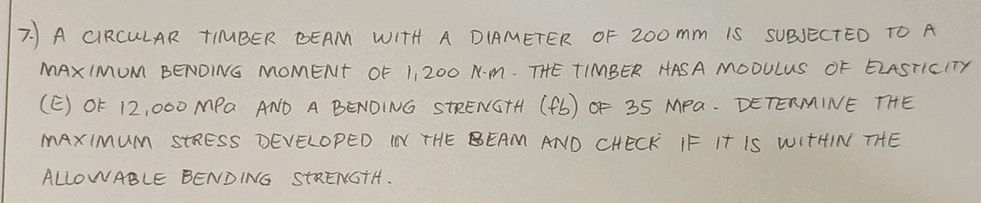 7.) A CIRCULAR TIMBER BEAM WITH A DIAMETER OF 200 mm IS SUBJECTED TO A
MAXIMUM BENDING MOMENT OF 1,200 N-m. THE TIMBER HAS A MODULUS OF ELASTICITY
(E) OF 12,000 MPa AND A BENDING STRENGTH (fb) OF 35 MPa. DETERMINE THE
MAXIMUM STRESS DEVELOPED IN THE BEAM AND CHECK IF IT IS WITHIN THE
ALLOWABLE BENDING STRENGTH.